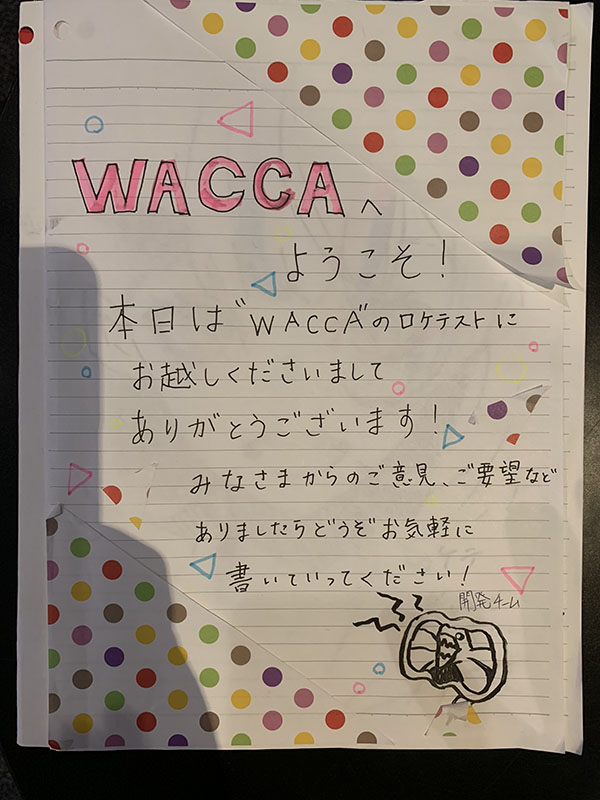 WACCAへ
ようこそ！
本日は"WACCA"のロケテストに
お越しくださいまして
ありがとうございます！
みなさまからのご意見、ご要望など
ありましたらどうぞお気軽に
書いていってください！
開発チーム